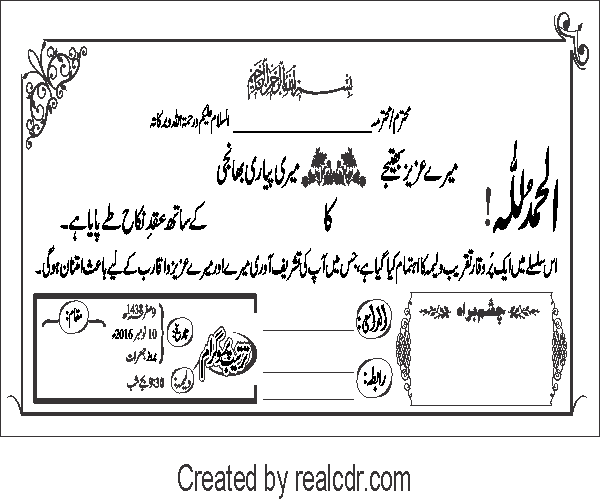 بسم اللہ الرحمن الرحیم
محترم/محترمہ ____________ السلام علیکم ورحمۃ اللہ وبرکاتہ
الحمدللہ!
میرے عزیز بھتیجے میری پیاری بھانجی
کا کے ساتھ عقدِ نکاح طے پایا ہے۔
اس سلسلے میں ایک پُروقار تقریب ولیمہ کا اہتمام کیا گیا ہے، جس میں آپ کی تشریف آوری میرے اور میرے عزیز و اقارب کے لیے باعث امتنان ہوگی۔
چشم براہ
الداعی:
رابطہ:
ترتیب پروگرام
تاریخ:
9 صفر 1438ھ
10 نومبر 2016ء
بروز جمعرات
ولیمہ: 9:30 بجے شب
مقام:
Created by realcdr.com